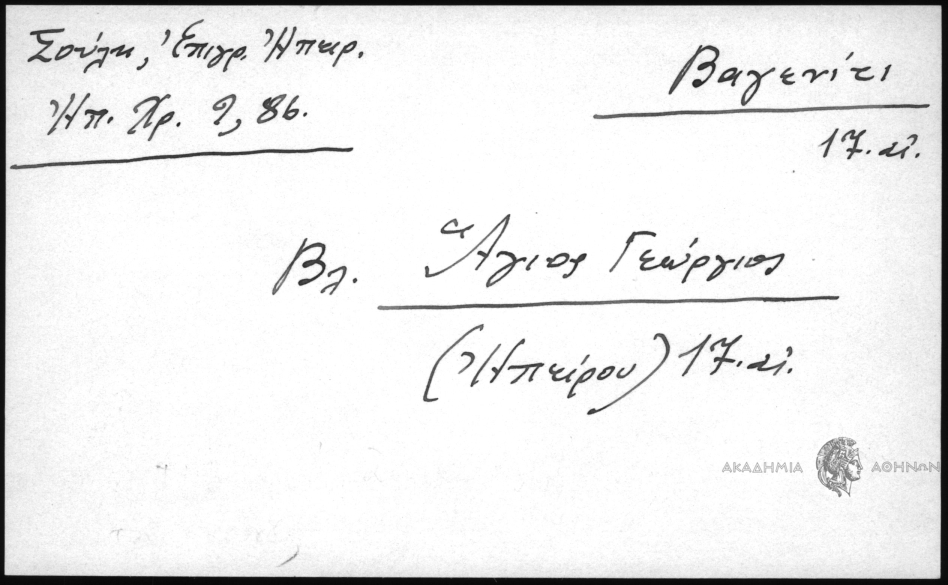 Σούλη, Ἐπιγρ. Ἠπειρ.
Ἠπ. Χρ. 9, 86.
Βαγενίτι
17. αἰ.
Βλ. Ἅγιος Γεώργιος
(Ἠπείρου) 17. αἰ.
ΑΚΑΔΗΜΙΑ ΑΘΗΝΩΝ